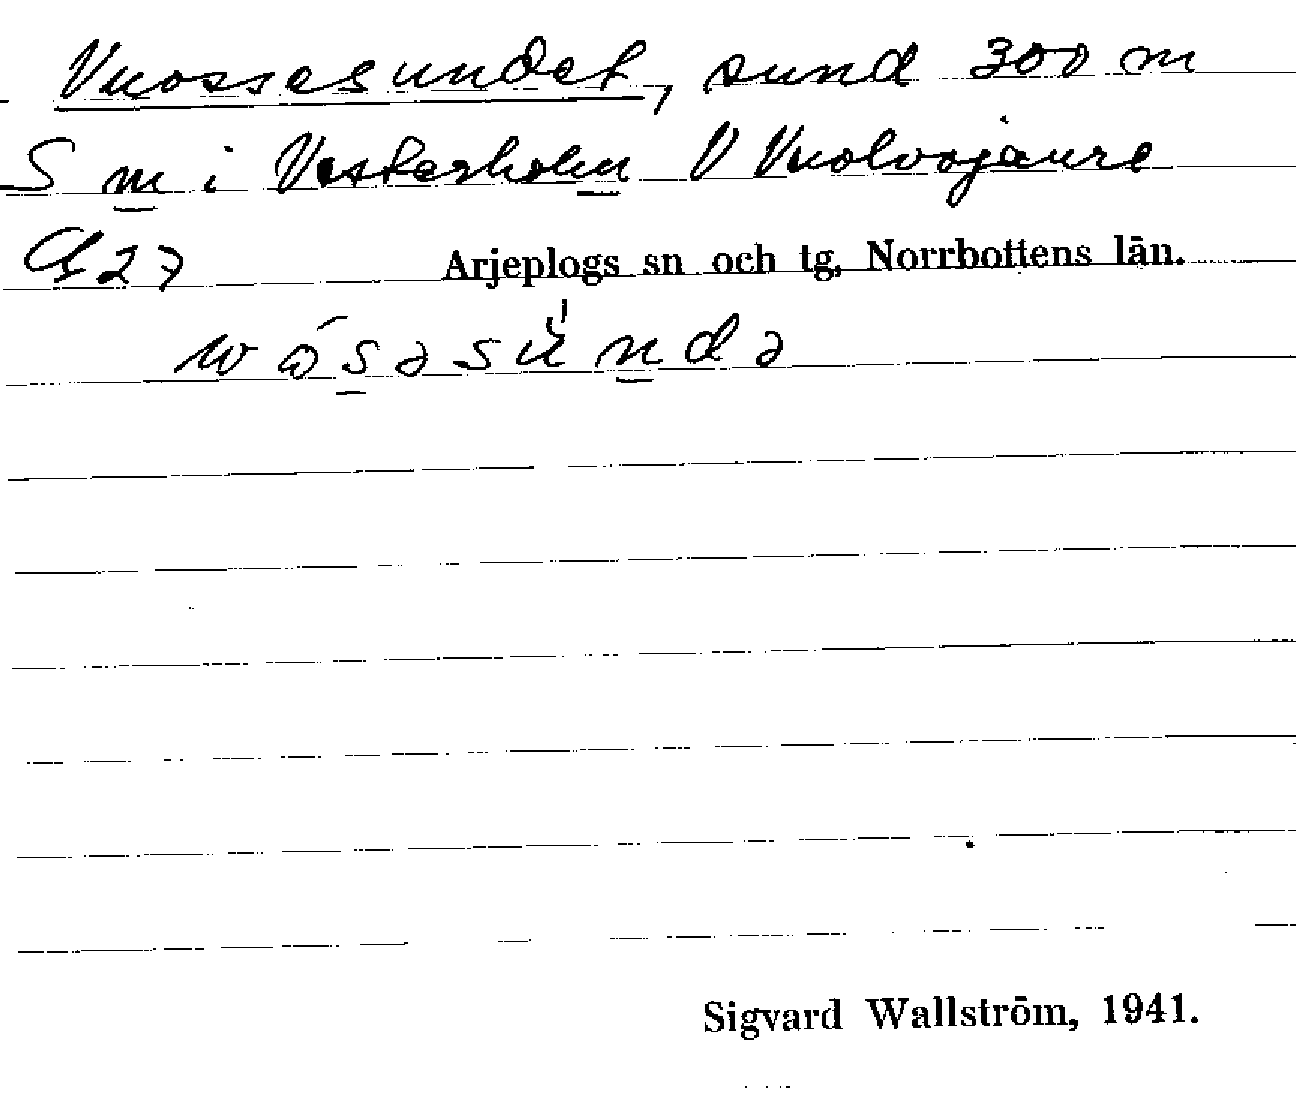 Vuossesundet, sund 300 m
S m i Vesterholm V Vuolvojaure
G27
Arjeplogs sn och tg, Norrbottens län.
Sigvard Wallström, 1941.